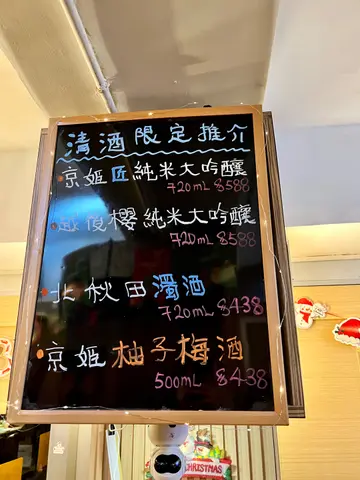 清酒限定推介
京姬匠純米大吟釀
720mL $588
越後櫻純米大吟釀
720mL $588
北秋田濁酒
720mL $438
京姬柚子梅酒
500mL $438
CHRISTMAS